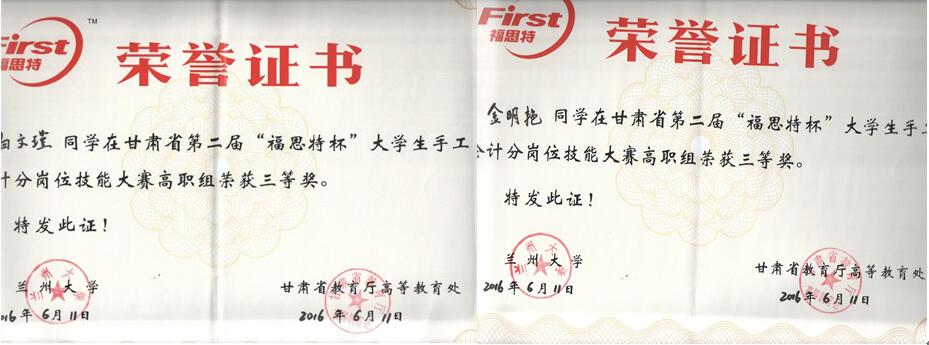 First
TM
福思特
荣誉证书
文瑾 同学在甘肃省第二届“福思特杯”大学生手工
计分岗位技能大赛高职组荣获三等奖。
特发此证！
兰州大学
甘肃省教育厅高等教育处
2016年6月11日
2016年6月11日
First
福思特
荣誉证书
金明艳 同学在甘肃省第二届“福思特杯”大学生手工
计分岗位技能大赛高职组荣获三等奖。
特发此证！
兰州大学
甘肃省教育厅高等教育处
2016年6月11日
2016年6月11日